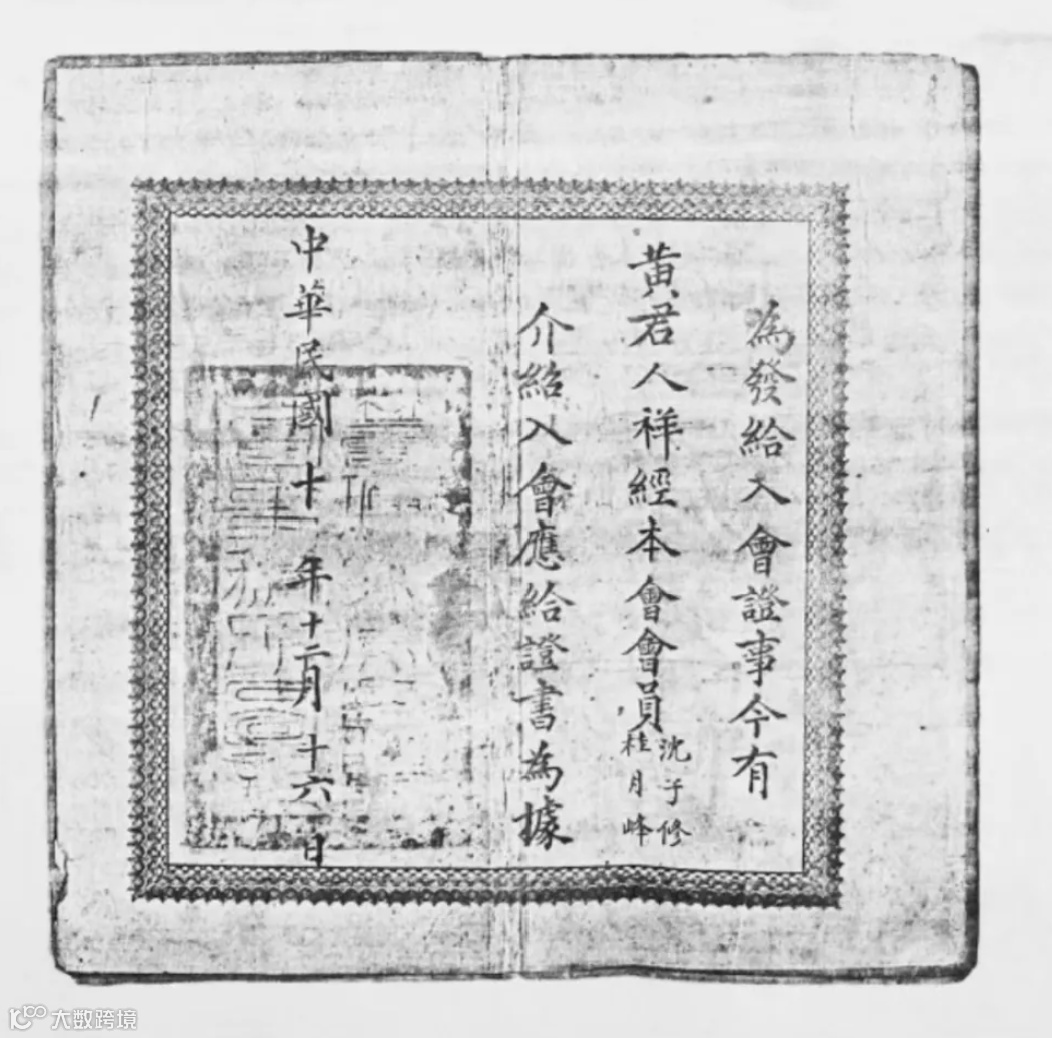 為發給入會證事今有
黃君人祥經本會會員沈子修
桂月峰
介紹入會應給證書為據
中華民國十一年十二月十六日
大数跨境